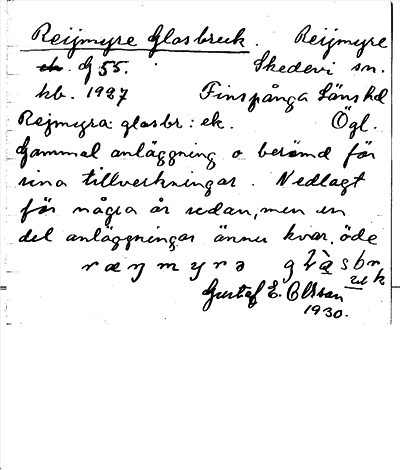 Reijmyre Glasbruk. Reijmyre
ek. G 55. Skedevi sn.
hb. 1927 Finspånga Läns hd
Rejmyra glasbr: ek. Ögl.
Gammal anläggning o berömd för
sina tillverkningar. Nedlagt
för några år sedan, men en
del anläggningar ännu kvar, öde
Gustaf E. Olsson
1930.